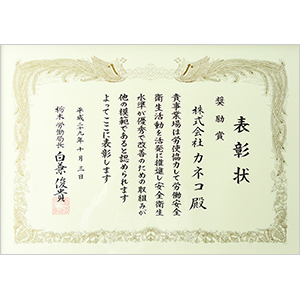 表彰状
奨励賞
株式会社 カネコ 殿
貴事業場は労使協力して労働安全
衛生活動を活発に推進し安全衛生
水準が優秀で改善のための取組みが
他の模範であると認められます
よってここに表彰します
平成二十九年十月三日
栃木労働局長
白兼俊貴